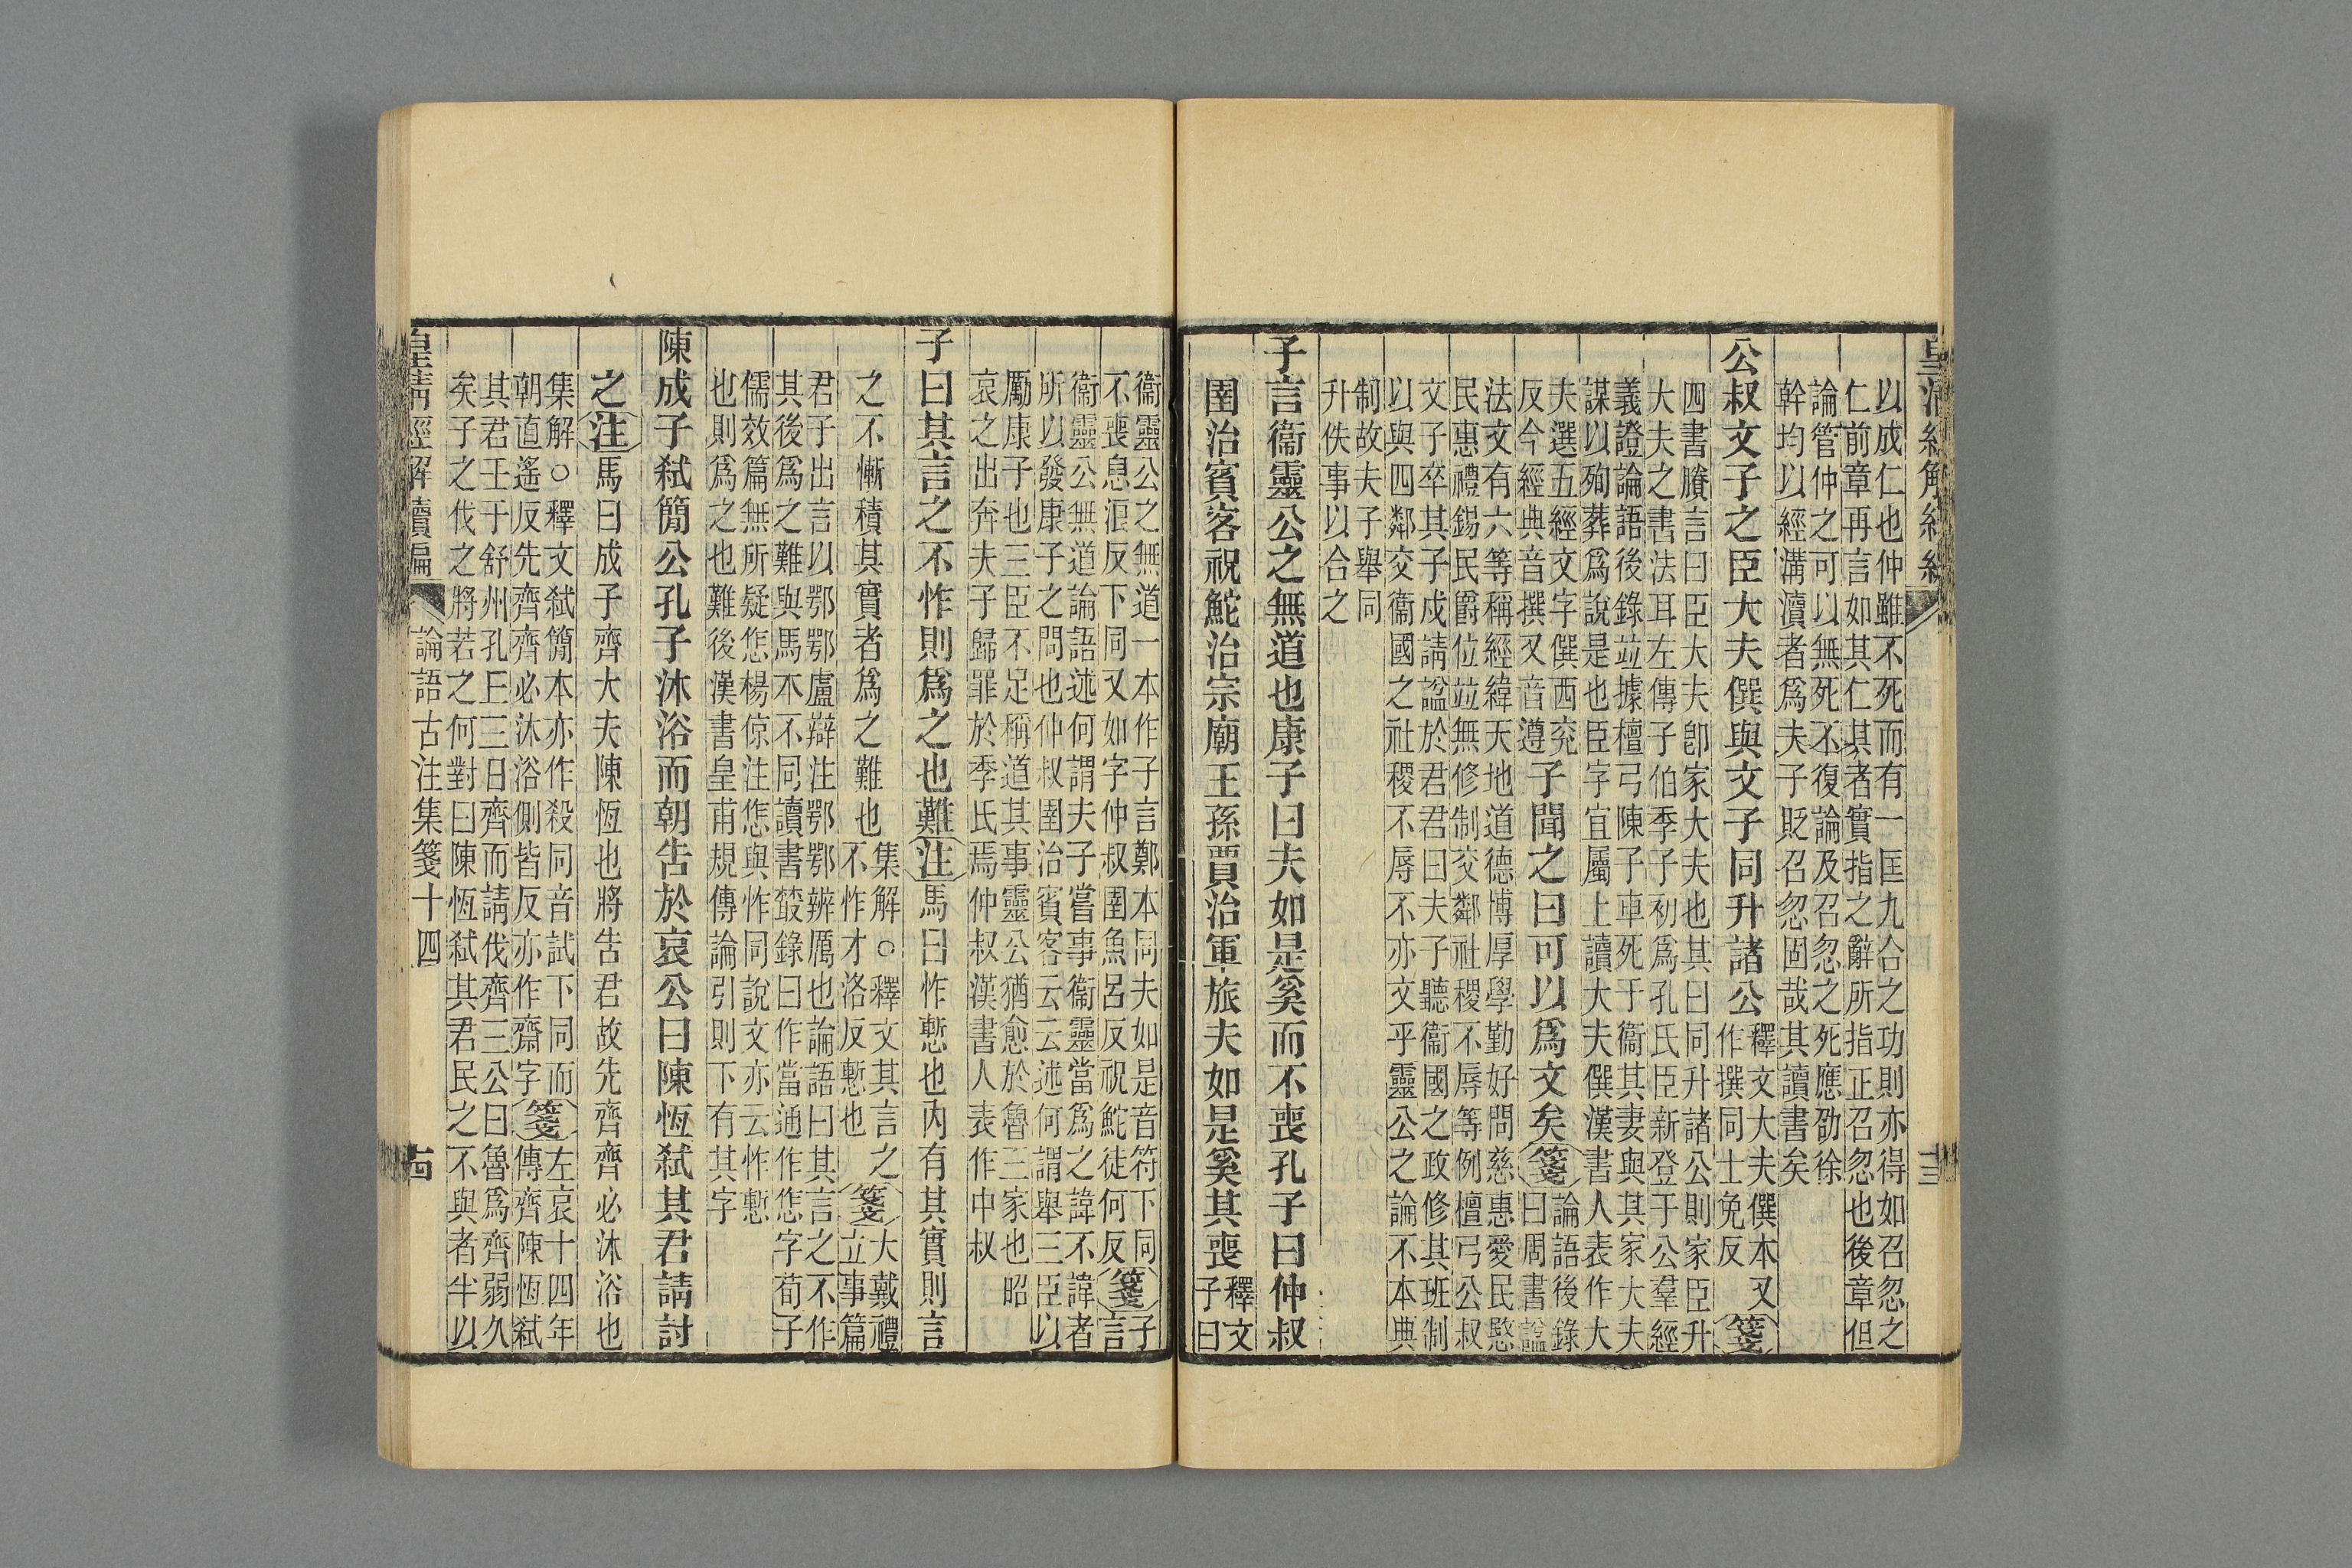 以成仁也仲雖不死而有一匡九合之功則亦得如召忽之
仁前章再言如其仁其者實指之辭所指正召忽也後章但
論管仲之可以無死不復論及召忽之死應劭徐
幹均以經溝瀆者爲夫子貶召忽固哉其讀書矣
公叔文子之臣大夫僎與文子同升諸公
釋文大夫僎本又
作撰同士免反箋
四書賸言曰臣大夫卽家大夫也其曰同升諸公則家臣升
大夫之書法耳左傳子伯季子初爲孔氏臣新登于公羣經
義證論語後錄竝據檀弓陳子車死于衞其妻與其家大夫
謀以殉葬爲說是也臣字宜屬上讀大夫僎漢書人表作大
夫選五經文字僎西兖
反今經典音撰又音遵
子聞之曰可以爲文矣箋
論語後錄
曰周書謚
法文有六等稱經緯天地道德博厚學勤好問慈惠愛民愍
民惠禮錫民爵位竝無修制交鄰社稷不辱等例檀弓公叔
文子卒其子戍請謚於君君曰夫子聽衞國之政修其班制
以與四鄰交衞國之社稷不辱不亦文乎靈公之論不本典
制故夫子舉同
升佚事以合之
子言衞靈公之無道也康子曰夫如是奚而不喪孔子曰仲叔
圉治賓客祝鮀治宗廟王孫賈治軍旅夫如是奚其喪
釋文
子曰
衞靈公之無道一本作子言鄭本同夫如是音符下同
不喪息浪反下同又如字仲叔圉魚呂反祝鮀徒何反箋子言
衞靈公無道論語述何謂夫子嘗事衞靈當爲之諱不諱者
所以發康子之問也仲叔圉治賓客云云述何謂舉三臣以
勵康子也三臣不足稱道其事靈公猶愈於魯三家也昭
哀之出奔夫子歸罪於季氏焉仲叔漢書人表作中叔
子曰其言之不怍則爲之也難注馬曰怍慙也內有其實則言
之不慚積其實者爲之難也
集解○釋文其言之
不怍才洛反慙也
箋
大戴禮
立事篇
君子出言以鄂鄂盧辯注鄂鄂辨厲也論語曰其言之不作
其後爲之難與馬本不同讀書叢錄曰作當通作怎字荀子
儒效篇無所疑怎楊倞注怎與怍同說文亦云怍慙
也則爲之也難後漢書皇甫規傳論引則下有其字
陳成子弑簡公孔子沐浴而朝告於哀公曰陳恆弑其君請討
之注馬曰成子齊大夫陳恆也將告君故先齊齊必沐浴也
集解○釋文弑簡本亦作殺同音試下同而
朝直遙反先齊齊必沐浴側皆反亦作齋字
箋
左哀十四年
傳齊陳恆弑
其君壬于舒州孔丘三日齊而請伐齊三公曰魯爲齊弱久
矣子之伐之將若之何對曰陳恆弑其君民之不與者半以
論語古注集箋十四